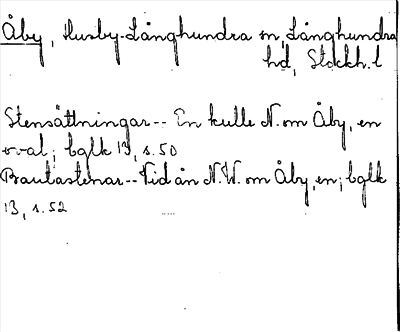 Åby, Husby-Långhundra sn, Långhundra
hd, Stockh. l
Stensättningar-- En kulle N. om Åby, en
oval; bglk 13, s. 50
Bautastenar-- Vid ån N.W. om Åby, en; bglk
13, s. 52